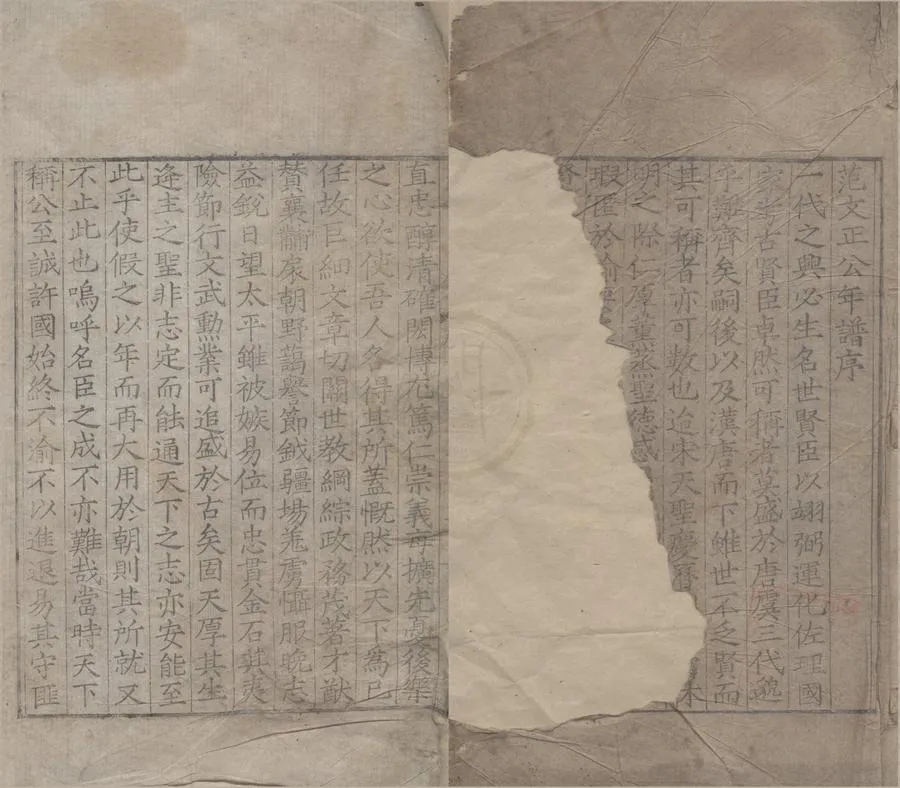 范文正公年譜序
一代之興必生名世賢臣以翊弼運化佐理國
家考古賢臣卓然可稱者莫盛於唐虞三代邈
乎難齊矣嗣後以及漢唐而下雖世不乏賢而
其可稱者亦可數也迨宋天聖慶曆
明之際仁厚薰蒸聖德感
瑕匪於
直忠醇清確閎博尨篤仁崇義每擴先憂後樂
之心欲使吾人各得其所蓋慨然以天下為己
任故巨細文章切關世教綱綜政務茂著才猷
贊襄黼扆朝野藹譽節鉞疆場羌虜懾服晚志
益銳日望太平雖被嫉易位而忠貫金石英夷
險節行文武勳業可追盛於古矣固天厚其生
逢主之聖非志定而能通天下之志亦安能至
此乎使假之以年而再大用於朝則其所就又
不止此也嗚呼名臣之成不亦難哉當時天下
稱公至誠許國始終不渝不以進退易其守匪